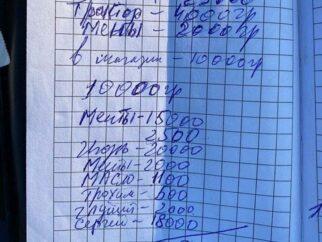 Трактор - 40000гр
Менты - 20000
в магазин - 10000гр
10000гр
Менты - 15000
2500
Игорь - 20000
Менты - 2000
МАСЛО - 1100
Трохим - 500
2000
Сергей - 18000